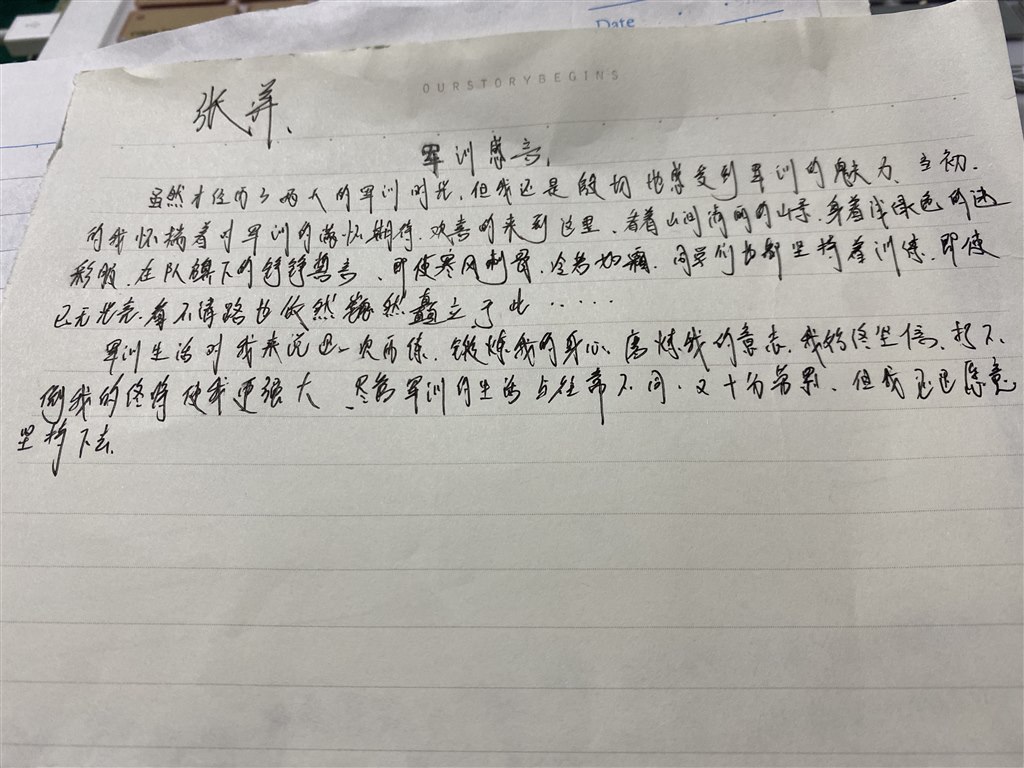 Date
OURSTORYBEGINS
张羊、
军训感言、
虽然才经历了两天的军训时光，但我还是殷切地感受到军训的魅力、当初、
的我怀揣着对军训的满怀期待、欢喜的来到这里、看着山间清丽的山景、身着浅绿色的迷
彩服、在队旗下的铮铮誓言、即使寒风刺骨、冷若如霜、同学们也都坚持着训练、即使
已无光亮、看不清路也依然 然矗立于此……
军训生活对我来说是一次历练、锻炼我的身心、磨炼我的意志、我始终坚信、打不、
倒我的终将使我更强大、尽管军训的生活与往常不同、又十分劳累、但我还是愿意
坚持下去、